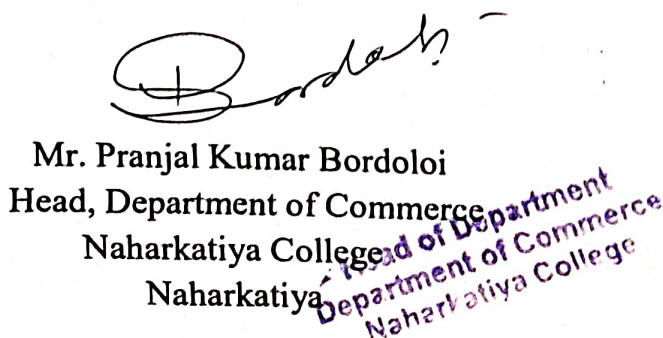 Bordoloi
Mr. Pranjal Kumar Bordoloi
Head, Department of Commerce
Naharkatiya College
Naharkatiya
Head of Department
Department of Commerce
Naharkatiya College